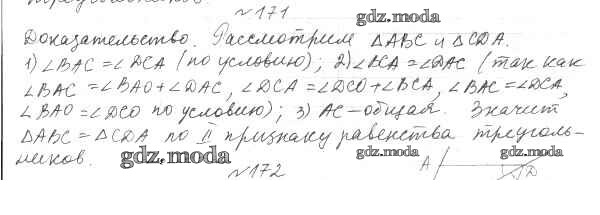 треугольников.
№171
gdz.moda
Доказательство. Рассмотрим △ABC и △CDA.
gdz.moda gdz.moda
1) ∠BAC = ∠DCA (по условию); 2) ∠BCA = ∠DAC (так как
∠BAC = ∠BAO + ∠DAC, ∠DCA = ∠DCO + ∠BCA, ∠BAC = ∠DCA,
∠BAO = ∠DCO по условию); 3) AC - общая. Значит
△ABC = △CDA по II признаку равенства треуголь-
ников.
gdz.moda gdz.moda gdz.moda
№172
A D